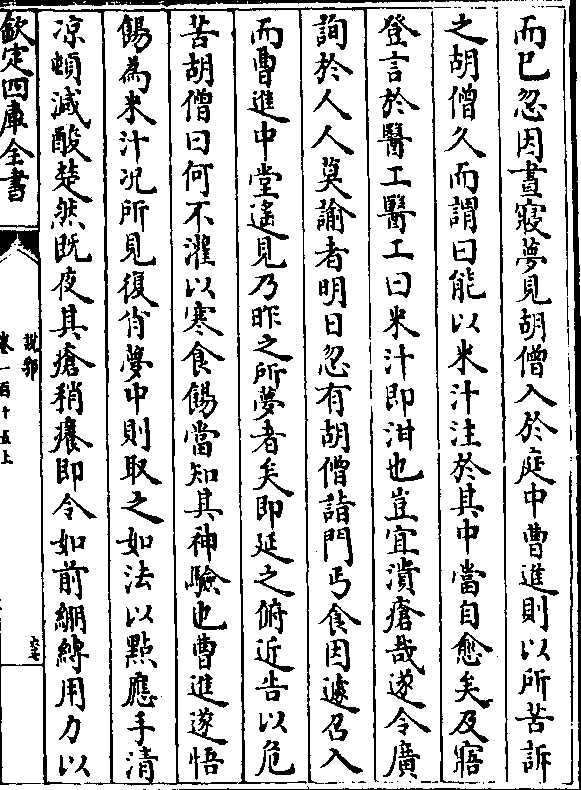 而已忽因晝寢夢見胡僧入於庭中曹進則以所苦訴
之胡僧久而謂曰能以米汁注於其中當自愈矣及寤
登言於醫工醫工曰米汁即泔也豈宜潰瘡哉遂令廣
詢於人人莫諭者明日忽有胡僧詣門丐食因遽召入
而曹進中堂遙見乃昨之所夢者矣即延之俯近告以危
苦胡僧曰何不灌以寒食餳當知其神驗也曹進遂悟
餳為米汁况所見復肖夢中則取之如法以點應手清
凉頓減酸楚然既夜其瘡稍癢即令如前綳縳用力以
欽定四庫全書
說郛
卷一百十五上